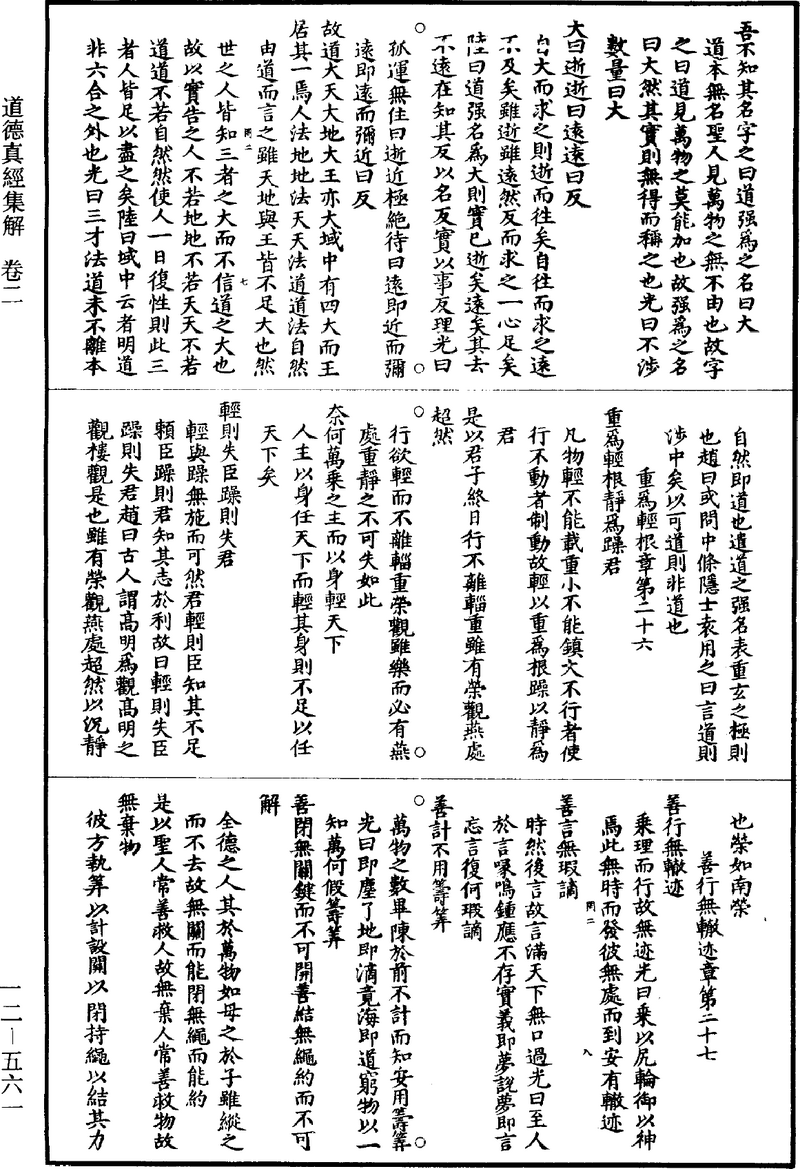 吾不知其名字之曰道强為之名曰大
道本無名聖人見萬物之無不由也故字
之曰道見萬物之莫能加也故强為之名
曰大然其實則無得而稱之也光曰不涉
數量曰大
大曰逝逝曰遠遠曰反
自大而求之則逝而往矣自往而求之遠
不及矣雖逝雖遠然反而求之一心足矣
陸曰道强名為大則實已逝矣遠矣其去
不遠在知其反以名反實以事反理光曰
孤運無住曰逝近極絶待曰遠即近而彌
遠即遠而彌近曰反
故道大天大地大王亦大域中有四大而王
居其一焉人法地地法天天法道道法自然
由道而言之雖天地與王皆不足大也然
世之人皆知三者之大而不信道之大也
故以實告之人不若地地不若天天不若
道道不若自然然使人一日復性則此三
者人皆足以盡之矣陸曰域中云者明道
非六合之外也光曰三才法道未不離本
自然即道也遣道之强名表重玄之極則
也趙曰或問中條隱士袁用之曰言道則
涉中矣以可道則非道也
重為輕根章第二十六
重為輕根靜為躁君
凡物輕不能載重小不能鎮大不行者使
行不動者制動故輕以重為根躁以靜為
君
是以君子終日行不離輜重雖有榮觀燕處
超然
行欲輕而不離輜重榮觀雖樂而必有燕
處重靜之不可失如此
奈何萬乘之主而以身輕天下
人主以身任天下而輕其身則不足以任
天下矣
輕則失臣躁則失君
輕與躁無施而可然君輕則臣知其不足
賴臣躁則君知其志於利故曰輕則失臣
躁則失君趙曰古人謂高明為觀高明之
觀樓觀是也雖有榮觀燕處超然以況靜
也榮如南榮
善行無轍迹章第二十七
善行無轍迹
乘理而行故無迹光曰乘以尻輪御以神
焉此無時而發彼無處而到安有轍迹
善言無瑕讁
時然後言故言滿天下無口過光曰至人
於言喙鳴鍾應不存實義即夢說夢即言
忘言復何瑕讁
善計不用籌筭
萬物之數畢陳於前不計而知安用籌筭
光曰即塵了地即滴竟海即道窮物以一
知萬何假籌筭
善閉無關鍵而不可開善結無繩約而不可
解
全德之人其於萬物如母之於子雖縱之
而不去故無關而能閉無繩而能約
是以聖人常善救人故無棄人常善救物故
無棄物
彼方執筭以計設關以閉持繩以結其力
道德真經集解　卷二
一二—五六一